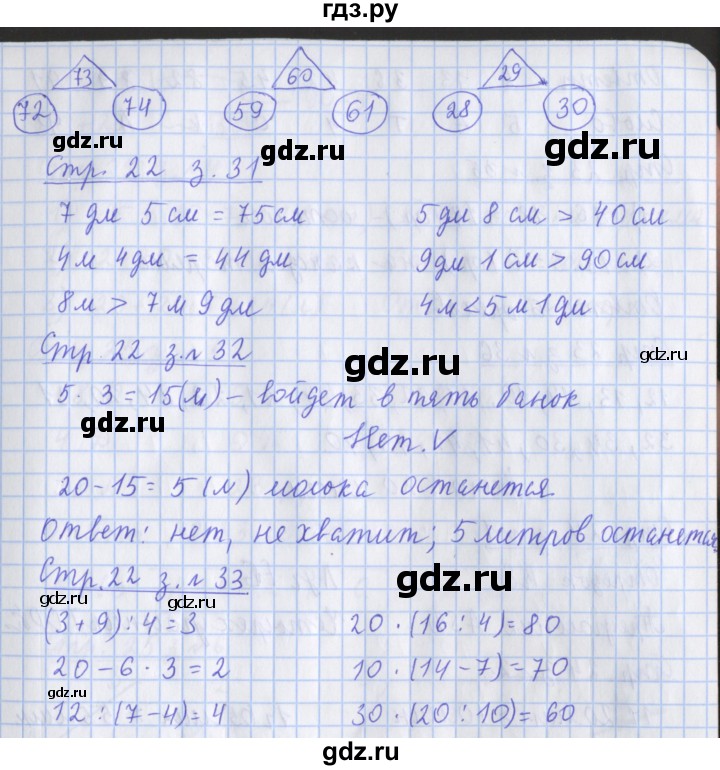 гдз.ру
73 60 29
72 74 59 61 28 30
gdz.ru gdz.ru gdz.ru
Стр. 22 з. 31
7 дм 5 см = 75 см 5 дм 8 см > 40 см
4 м 4 дм = 44 дм 9 дм 1 см > 90 см
8 м > 7 м 9 дм 4 м < 5 м 1 дм
Стр. 22 з.№ 32
gdz.ru gdz.ru
5 · 3 = 15 (л) – войдет в пять банок
gdz.ru
Нет. V
20 – 15 = 5 (л) молока останется.
Ответ: нет, не хватит; 5 литров останется.
Стр. 22 з.№ 33
gdz.ru gdz.ru gdz.ru
(3 + 9) : 4 = 3 20 · (16 : 4) = 80
20 – 6 · 3 = 2 10 · (14 – 7) = 70
gdz.ru gdz.ru
12 : (7 – 4) = 4 30 · (20 : 10) = 60
gdz.ru